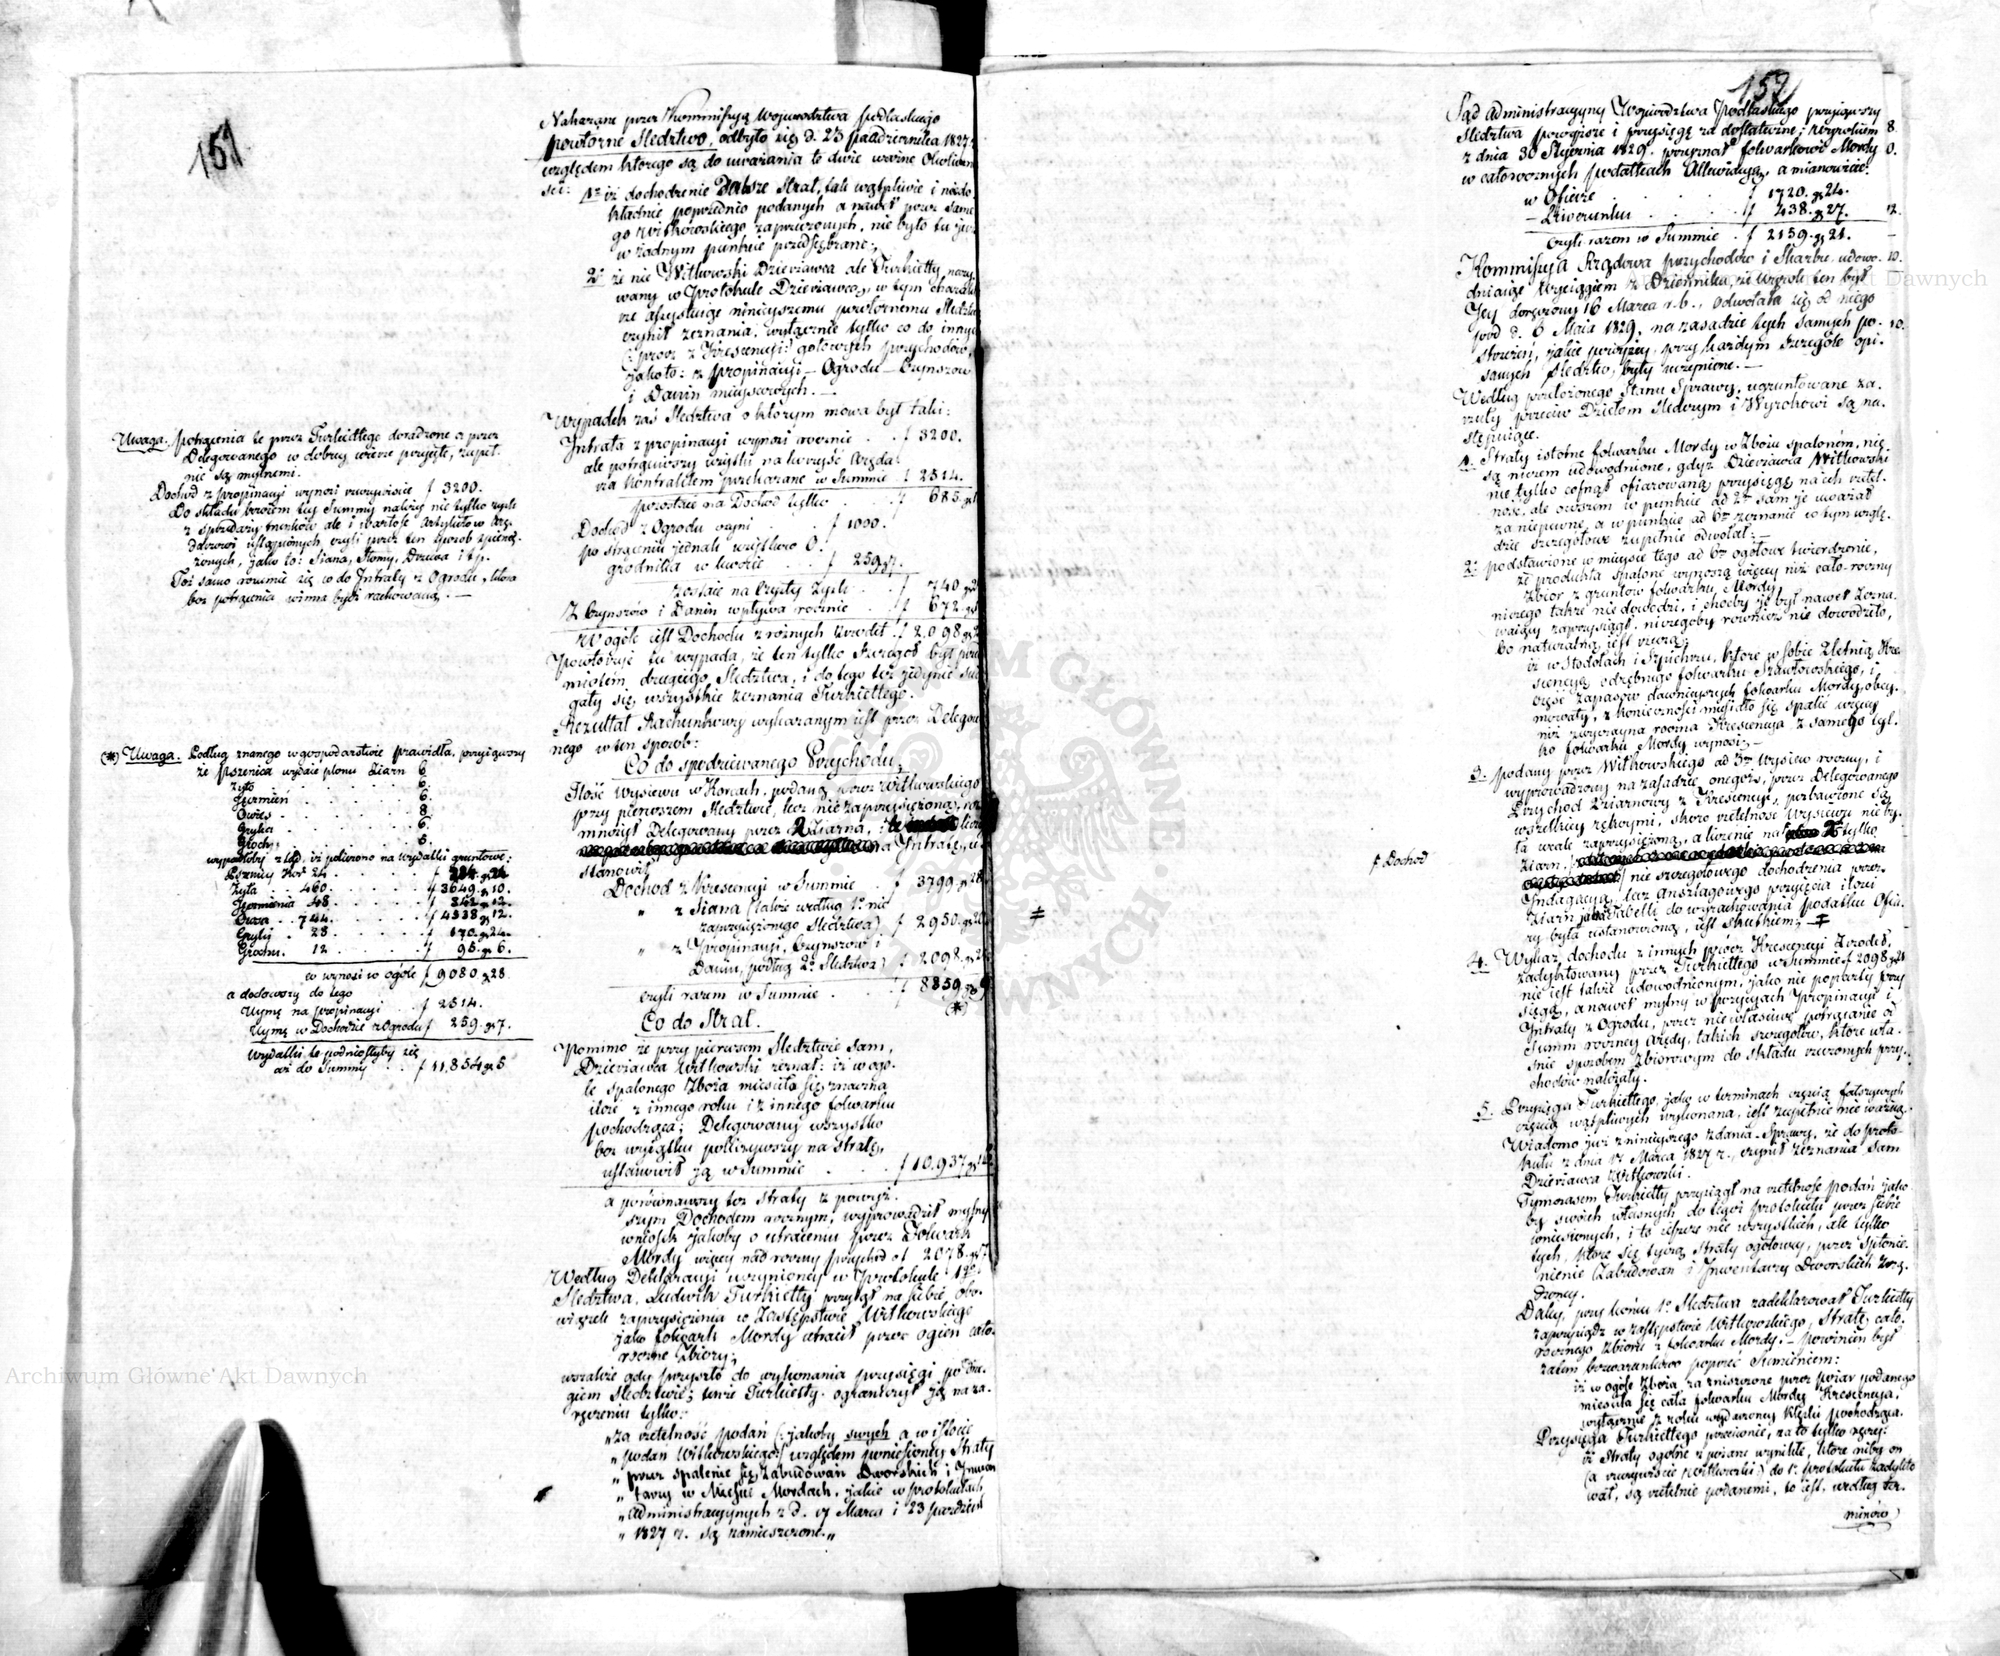 151
Nakazane przez Kommissyą Województwa Podlaskiego
powtorne Sledztwo, odbyło się d. 23 Października 1827
względem ktorego są do uważania te dwie ważne Okoliczno
sci: 1º iż dochodzenie Dalsze Strat, tak wątpliwie i niedo
kładnie poprzednio podanych a nawet przez same
go Witkowskiego zaprzeczonych, nie było tu już
w żadnym punkcie przedsiębrane;
2º że nie Witkowski Dzierżawca ale Turkietty nazy
wany w Protokule Dzierżawcą, w tym charakte
rze assystuiąc ninieyszemu powtórnemu Sledztwu
czynił zeznania, wyłącznie tylko co do innych
(: prócz z Krescencyi:) gotowych przychodów,
jakoto: z propinacyi - Ogrodu - Czynszow
i Danin mieyscowych. -
Wypadek zaś Sledztwa o którym mowa był taki:
Intrata z propinacyi wynosi rocznie . . f 3200.
ale potrąciwszy wziętki na korzyść Aręda-
rza Kontraktem przekazane w Summie f 2514.
pozostaie na Dochod tylko . . f 685.
Dochod z Ogrodu czyni . . . f 1000.
po strąceniu jednak wziętkow O-
grodnika w kwocie . . . f 259 gr 7.
zostaie na Czysty Zysk . . f 740 gr
Z Czynszow i Danin wpływa rocznie . . f 672 gr
W ogóle jest Dochodu z różnych Zrodeł . f 2,098 gr
Powtorzyć tu wypada, że ten tylko Szczegoł był przed
miotem drugiego Sledztwa, i do tego też jedynie ścią
gały się wszystkie zeznania Turkiettego.
Rezultat Rachunkowy wykazanym jest przez Delegowa
nego w ten sposob:
Co do spodziewanego Przychodu,
Ilość wysiewu w Korcach, podaną przez Witkowskiego
przy pierwszem Sledztwie, lecz nie zaprzysiężoną, roz
mnożył Delegowany przez 2 Ziarna,
na Intratę, u-
stanowił
Dochod z Krescencyi w Summie . . f 3799 gr 28
" z Siana (także według 1º nie
zaprzysiężonego Sledztwa) . f 2950 gr 20
" z Propinacyi, Czynszow i
Danin, podług 2º Sledztwa) f 2098 gr
czyli razem w Summie . . . f 8859 gr 9
(*)
Co do Strat.
Pomimo że przy pierwszem Sledztwie sam,
Dzierżawca Witkowski zeznał: iż w ogo-
le spalonego Zboża mieściła się znaczna
ilość z innego roku i z innego folwarku
pochodząca; Delegowany wszystko
bez wyiątku policzywszy na Stratę,
ustanowił ją w Summie . . . f 10,937 gr
a porównawszy też straty z powyż-
szym Dochodem rocznym, wyprowadził mylny
wniosek jakoby o utraceniu przez Folwark
Mordy więcey nad roczny przychód o f 2078 gr 7
Według Deklaracyi uczynioney w Protokule 1go
Sledztwa, Ludwik Turkietty przyiął na siebie obo-
wiązek zaprzysiężenia w Zastępstwie Witkowskiego
jako folwark Mordy utracił przez ogień cało-
roczne Zbiory;
wszakże gdy przyszło do wykonania przysięgi po dru-
giem Sledztwie; tenże Turkietty ograniczył ją na za-
ręczeniu tylko:
„za rzetelność podań (: jakoby swych a w istocie
„podań Witkowskiego:) względem poniesioney Straty
„przez spalenie się, Zabudowań Dworskich i Inwen
„tarzy w Mieście Mordach, jakie w protokułach
„Administracyinych z d. 17 Marca i 23 Paździer
„1827 r. są zamieszczone.„
Uwaga. Potrącenia te przez Turkiettego doradzone a przez
Delegowanego w dobrey wierze przyięte, zupeł-
nie są mylnemi.
Dochod z Propinacyi wynosi rzeczywiście f 3200.
Do składu bowiem tey Summy należą nie tylko zyski
z sprzedaży trunków ale i wartość Artykułow Arę-
darzowi ustąpionych, czyli przez ten sposob spienię-
żonych, jako to: Siana, Słomy, Drzewa i t.p.
Toż samo rozumie się co do Intraty z Ogrodu, która
bez potrącenia winna być rachowaną. -
(*) Uwaga. Podług znanego w gospodarstwie prawidła, przyiąwszy
że pszenica wydaie plonu Ziarn 6
Żyto . . . . 6.
Jęczmień . . . 6.
Owies . . . 8
Gryka . . . 6.
Groch . . . 5.
wypadłoby z tąd, iż policzono na wydatki gruntowe:
Pszenicy Kor 24
Żyta . . 460. . . f 3649 gr 10.
Jęczmienia 48. . . f 342 gr 12.
Owsa . . 744. . . f 4338 gr 12.
Gryki . 28 . . f 170 gr 24.
Grochu . 12 . . f 95 gr 6.
co wynosi w ogóle f 9080 gr 28
a dodawszy do tego
Uymę na propinacyi . . f 2514.
Uymę w Dochodzie z Ogrodu f 259 gr 7.
wydatki te podniosłyby się
aż do Summy . . f 11,854 gr 5
152
Sąd Administracyiny Wojewodztwa Podlaskiego przyiąwszy
Sledztwa powyższe i przysięgę za dostateczne; Wyrokiem
z dnia 30 Stycznia 1829. przyznał folwarkowi Mordy
w całorocznych podatkach Allewiacyą, a mianowicie:
w Ofierze . . . f 1720. gr 24.
- Liwerunku . . . f 438. gr 27.
czyli razem w Summie . f 2159. gr 21.
Kommissya Rządowa Przychodów i Skarbu, udowo-
dniaiąc Wyciągiem z Dziennika, że Wyrok ten był
Jey doręczony 16 Marca r.b., odwołała się od niego
pod d. 6 Maia 1829. na zasadzie tych samych po-
strzeżeń, jakie powyżey, przy każdym szczególe opi-
sanych Sledztw, były uczynione. -
Według przełożonego Stanu Sprawy, ugruntowane za-
rzuty przeciw Dziełom śledczym i Wyrokowi są na-
stępuiące.
1. Straty istotne folwarku Mordy w Zbożu spalonem, nie
są niczem udowodnione, gdyż Dzierżawca Witkowski
nie tylko cofnął ofiarowaną przysięgę na ich rzetel-
ność, ale owszem w punkcie ad 2m sam je uważał
za niepewne, a w punkcie ad 6m zeznanie w tym wzglę-
dzie szczegółowe zupełnie odwołał: -
2. podstawione w mieysce tego ad 6m ogółowe twierdzenie,
że produkta spalone wynoszą więcey niż cało-roczny
Zbior z gruntów folwarku Mordy,
niczego także nie dowodzi, i choćby je był nawet Zezna-
waiący zaprzysiągł, niczegoby również nie dowodziło,
bo naturalną jest rzeczą;
iż w Stodołach i Spichrzu, które w sobie 2letnią Kre-
scencyą odrębnego folwarku Szawłowskiego, i
część zapasow dawnieyszych folwarku Mordy, obey-
mowały, z konieczności musiało się spalić więcey
niż zwyczayna roczna Krescencya z samego tyl-
ko folwarku Mordy wynosi; -
3. podany przez Witkowskiego ad 3m Wysiew roczny, i
wyprowadzony na zasadzie onegoż, przez Delegowanego
Przychod Ziarnowy z Krescencyi, pozbawione są
wszelkiey rękoymi, skoro rzetelność Wysiewu nie by-
ła wcale zaprzysiężoną, a liczenie na 2 tylko
Ziarn,
nie szczegółowego dochodzenia przez
Indagacyą, lecz Ansztagowego przyięcia ilości
Ziarn jaka Tabelli do wyrachowania podatku Ofia-
ry była ustanowioną, jest skutkiem; - ‡
4. Wykaz dochodu z innych prócz Krescencyi Zrodeł,
zadyktowany przez Turkiettego w Summie f 2098 gr 21
nie jest także udowodnionym, jako nie poparty przy-
sięgą, a nawet mylny w pozycyach Propinacyi i
Intraty z Ogrodu, przez niewłaściwe potrącanie od
Summ roczney Arędy, takich szczegółów, które wła-
śnie sposobem zbiorowym do składu rzeczonych przy-
chodow należały.
5. Przysięga Turkiettego, jako w terminach częścią fałszywych
częścią wątpliwych wykonana, jest zupełnie nie ważną.
Wiadomo już z ninieyszego zdania Sprawy, że do proto-
kułu z dnia 17 Marca 1827 r., czynił zeznania Sam
Dzierżawca Witkowski.
Tymczasem Turkietty przysiągł na rzetelność podań jako-
by swoich własnych, do tegoż protokułu przez siebie
wniesionych, i to jeszcze nie wszystkich, ale tylko
tych, które się tyczą straty ogółowey, przez spłonie-
nienie Zabudowań i Inwentarzy Dworskich zrzą-
dzoney.
Daley, przy końcu 1º Sledztwa zadeklarował Turkietty
zaprzysiądz w zastępstwie Witkowskiego, Stratę cało-
rocznego Zbioru z folwarku Mordy, - powinien był
zatem bezwarunkowo poprzeć Sumieniem:
iż w ogóle Zboża, za zniszczone przez pożar podanego
mieściła się cała folwarku Mordy Krescencya,
wyłącznie z roku wydarzoney klęski pochodząca.
Przysięga Turkiettego przeciwnie, za to tylko ręczy:
iż Straty ogólne z pożaru wynikłe, które niby on
(a rzeczywiście Witkowski:) do 1º protokułu zadykto-
wał, są rzetelnie podanemi, to jest, według ter-
minów
‡ Dochod
‡
8.
0.
12.
10.
10.
Archiwum Główne Akt Dawnych
Archiwum Główne Akt Dawnych